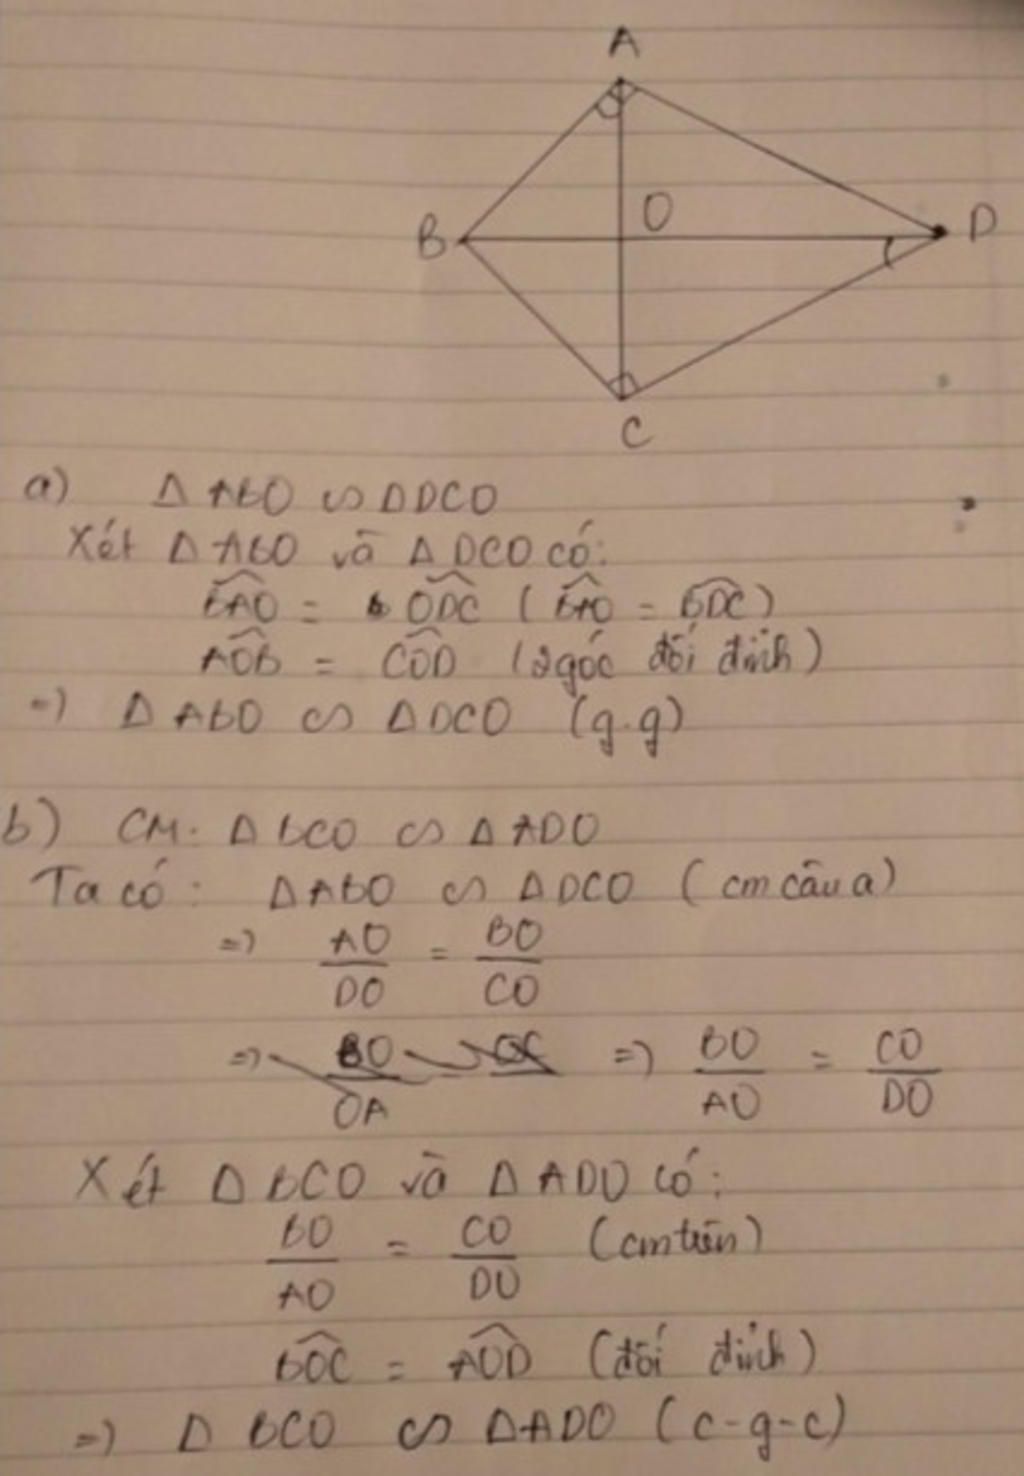 A
B
O
D
C
a) Δ ABO ∽ Δ DCO
Xét Δ ABO và Δ DCO có:
BAO = ODC ( BAO = BDC )
AOB = COD (2 góc đối đỉnh)
=) Δ ABO ∽ Δ DCO (g.g)
b) CM: Δ BCO ∽ Δ ADO
Ta có: Δ ABO ∽ Δ DCO ( cm câu a)
=) AO/DO = BO/CO
=) BO/AO = CO/DO
Xét Δ BCO và Δ ADO có:
BO/AO = CO/DO (cm trên)
BOC = AOD (đối đỉnh)
=) Δ BCO ∽ Δ ADO (c-g-c)